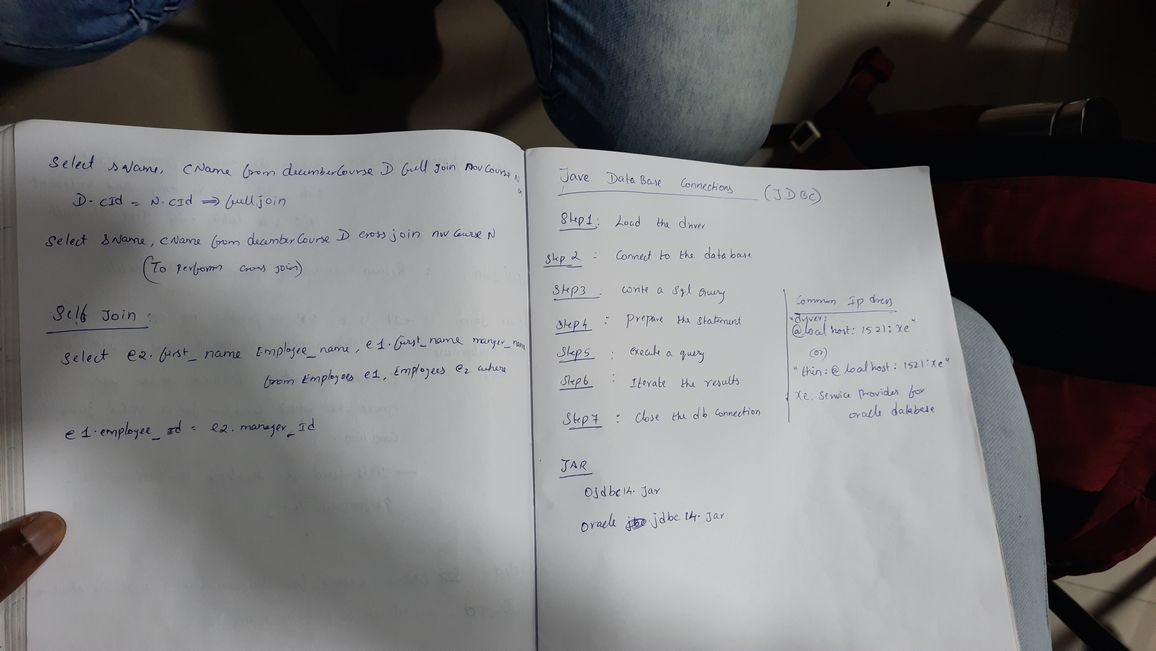 Select sName, CName from decemberCourse D full join nov Course N
D.cId = N.cId ⇒ full join
Select sName, cName from decemberCourse D cross join nov Course N
(To perform cross join)
Self Join :
Select e2.first_name Employee_name, e1.first_name manger_name
from Employees e1, Employees e2 where
e1.employee_Id = e2.manager_Id
Jave DataBase Connections (JDBC)
Step1: Load the driver
Step 2 : Connect to the database
Step3 : write a Sql Query
Step4 : prepare the statement
Step5 : execute a query
Step6 : Iterate the results.
Step7 : Close the db connection
Common Ip dress
"driver:
@localhost:1521:xe"
(or)
"thin:@localhost:1521:xe"
Xe. Service Provider for
oracle database
JAR
Ojdbc14.jar
Oracle .jdbc 14.Jar